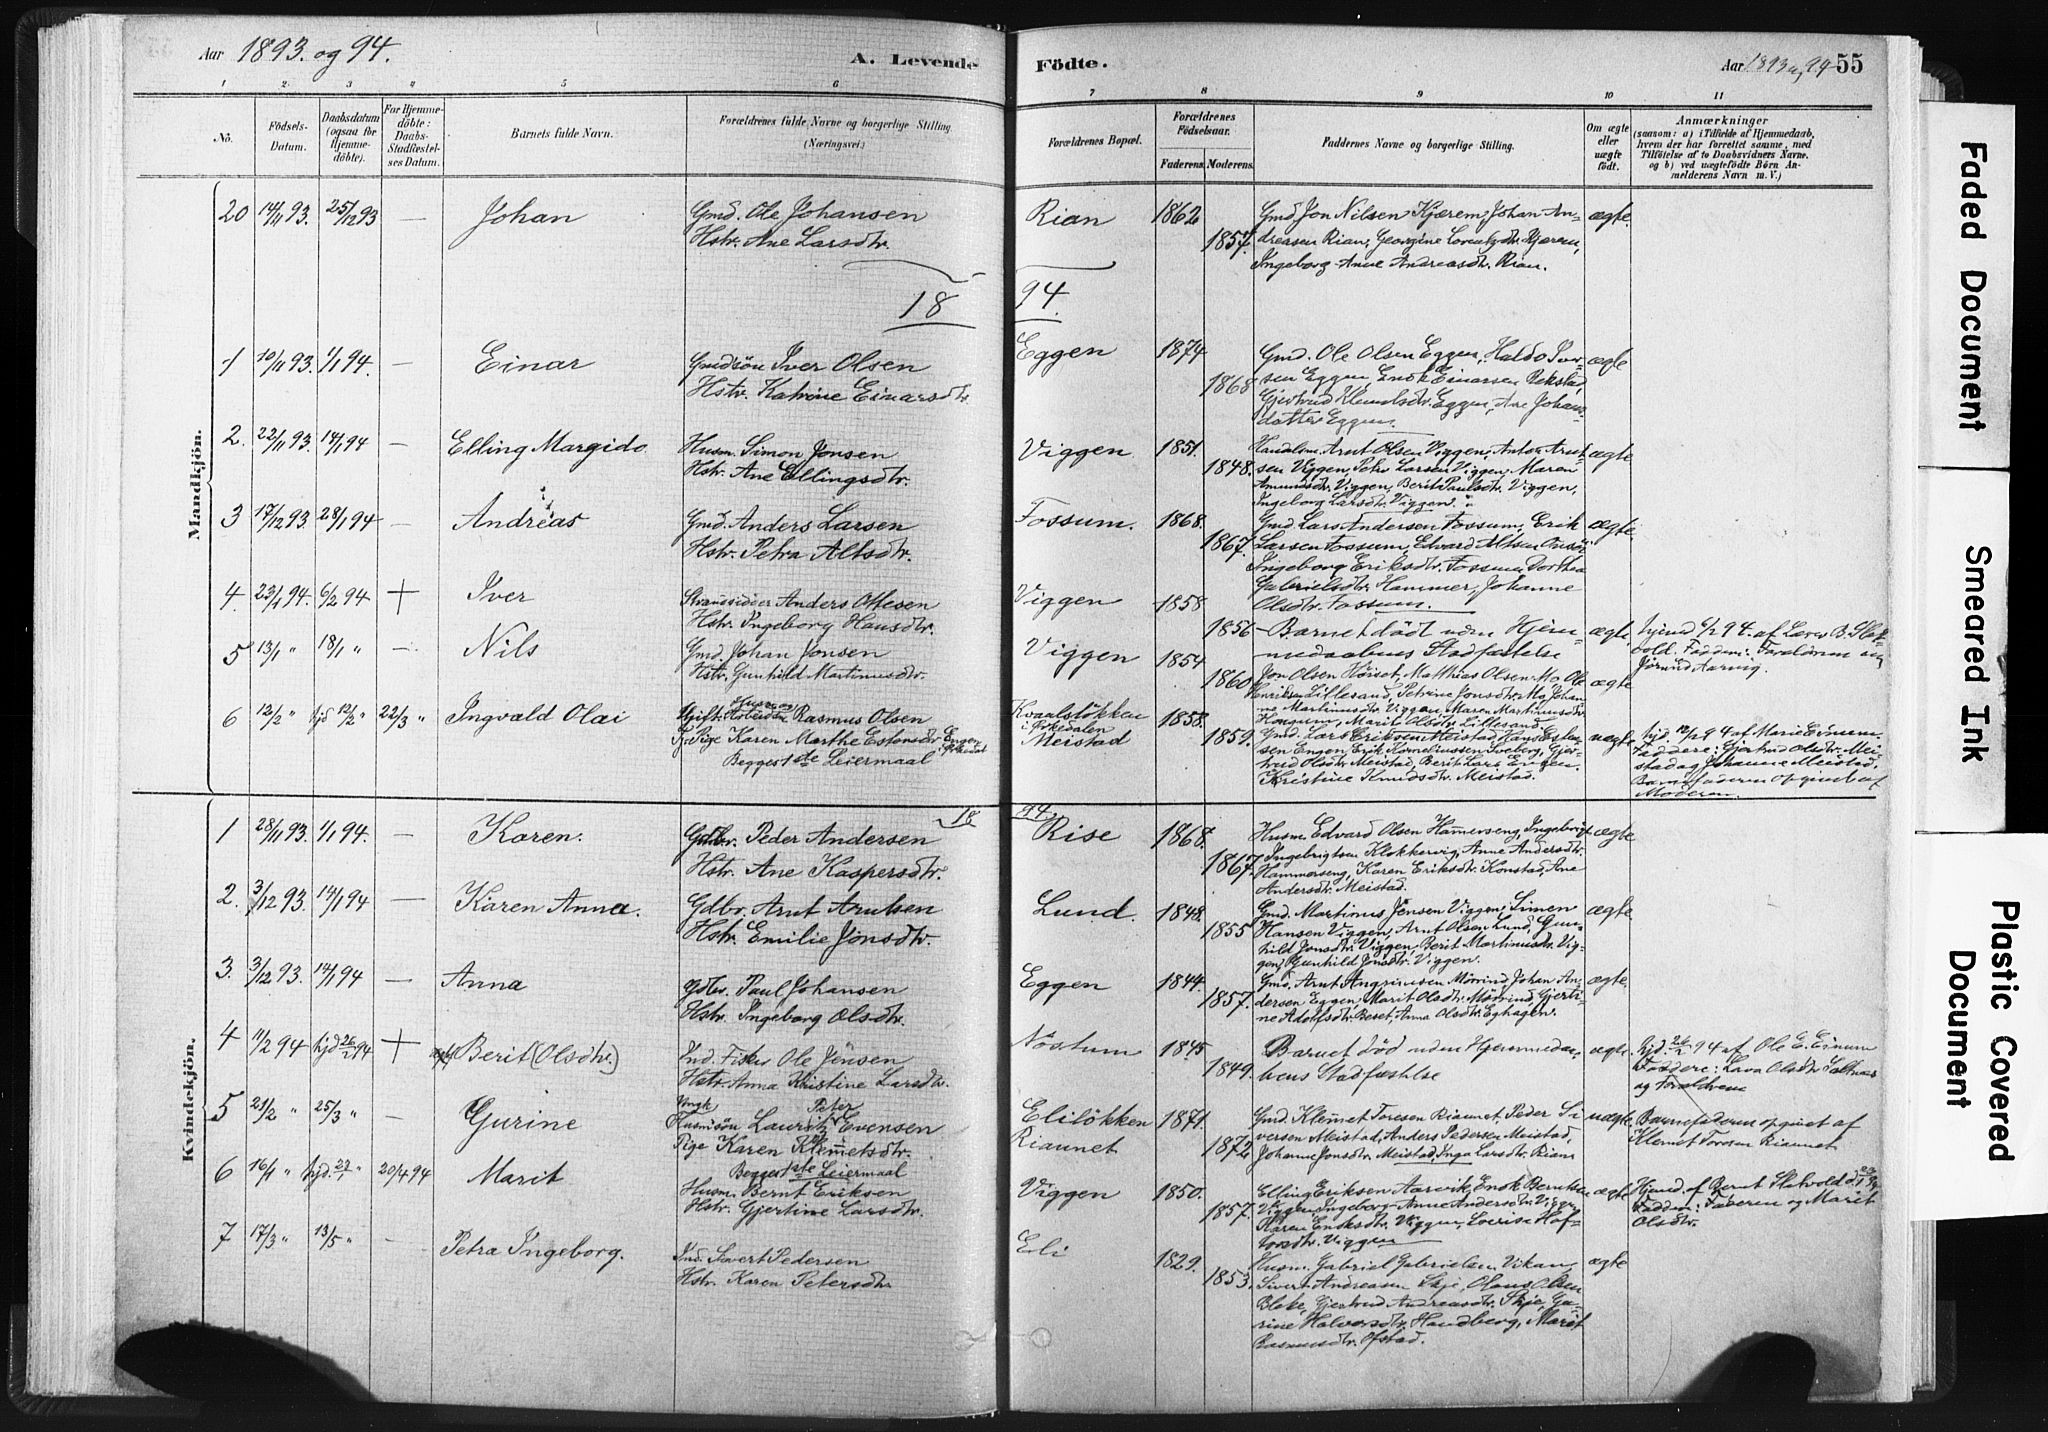 Aar 1893. og 94.
A. Levende Födte.
Aar 1893 og 94 55
1 2. 3 4 5 6 7 8 9 10 11
No.
Födsels-Datum.
Daabsdatum (ogsaa for Hjemme-döbte).
For Hjemme-döbte: Daabs-Stadfæstel-ses Datum.
Barnets fulde Navn.
Forældrenes fulde Navne og borgerlige Stilling. (Næringsvei.)
Forældrenes Bopæl.
Forældrenes Födselsaar.
Faderens. Moderens.
Faddernes Navne og borgerlige Stilling.
Om ægte eller uægte födt.
Anmærkninger
(saasom: a) i Tilfælde af Hjemmedaab, hvem der har forrettet samme, med Tilföielse af to Daabsvidners Navne, og b) ved uægtefödte Börn An-melderens Navn m. V.)
Mandkjön.
20 14/11 93. 25/12 93 — Johan
Gmd. Ole Johansen
Hstr. Ane Larsdtr.
Rian 1862 1857.
Gmd Jon Nilsen Kjærem, Johan An-
dreassen Rian, Georgine Lorentsdtr. Kjærem,
Ingeborg Anne Andreasdtr. Rian.
ægte.
18 94.
1 10/11 93. 1/1 94. — Einar
Gmdsön Iver Olsen
Hstr. Katrine Einarsdtr.
Eggen 1874 1868
Gmd. Ole Olsen Eggen, Haldo Iver-
sen Eggen, Enok Einarsen Rekstad,
Gjertrud Klemetsdtr. Eggen, Ane Johans-
datter Eggen.
ægte
2. 22/11 93. 14/1 94 — Elling Margido
Husm. Simon Jonsen
Hstr. Ane Ellingsdtr.
Viggen 1851. 1848.
Arnt Olsen Viggen, Anton Arnt-
sen Viggen, Peter Larsen Viggen, Maren
Amundsdtr. Viggen, Berit Paulsdtr. Viggen,
Ingeborg Larsdtr. Viggen.
ægte
3 17/12 93. 28/1 94 — Andreas
Gmd. Anders Larsen
Hstr. Petra Altsdtr.
Fossum. 1868. 1867.
Gmd. Lars Andersen Fossum, Erik
Larsen Fossum, Edvard Altsen
Ingeborg Eriksdtr. Fossum, Dorthea
Gabrielsdtr. Hammer, Johanne
Olsdtr. Fossum.
ægte.
4. 23/1 94. 6/2 94 + Iver
Strandsidder Anders Ottesen
Hstr. Ingeborg Hansdtr.
Viggen 1858 1856
Barnet dödt uden Hjem-
medaabens Stadfæstelse
ægte.
hjemd 6/2 94. af Lars B. Slet-
vold. Faddere: Forældrene og
Jörund Aarvig.
5 13/1 " 18/1 " — Nils
Gmd. Johan Jonsen
Hstr. Gunhild Martinusdtr.
Viggen 1854 1860
Jon Olsen Hörset, Matthias Olsen Mo, Ole
Henriksen Lillesand, Petrine Jonsdtr. Mo, Johan-
na Martinusdtr. Viggen, Maren Martinusdtr.
Marit Olsdtr. Lillesand.
ægte
6 12/2 " hjd 12/2 " 22/3 " Ingvald Olai
Gift Arbeider Rasmus Olsen
Pige Karen Marthe Estensdtr. Engen
Begges 1ste Leiermaal
Kvaalslökken
Meistad
1858. 1859.
Gmd. Lars Eriksen Meistad, Hans Esten-
sen Engen, Erik Korneliussen Sveberg, Gjer-
trud Olsdtr. Meistad, Berit Lars. Engen.
Kristine Knudsdtr. Meistad.
uægte
hjd. 12/2 94 af Marie Einum.
Faddere: Gjertrud Olsdtr. Mei-
stad og Johanne Meistad.
Barnefaderen opgivet af
Moderen.
Kvindekjön.
18 94.
1 28/11 93. 1/1 94. — Karen.
Gdbr. Peder Andersen
Hstr. Ane Kaspersdtr.
Rise 1868. 1867.
Husm. Edvard Olsen Hammerseng, Ingebrigt
Ingebrigtsen Klokkervig, Anne Andersdtr.
Hammerseng, Karen Eriksdtr. Konstad, Ane
Andersdtr. Meistad.
ægte
2. 3/12 93. 14/1 94 — Karen Anna.
Gdbr. Arnt Arntsen
Hstr. Emilie Jonsdtr.
Lund. 1848. 1855
Gmd. Martinus Jensen Viggen, Simen
Hansen Viggen, Arnt Olsen Lund, Gun-
hild Jonsdtr. Viggen, Berit Martinusdtr. Vig-
gen, Gunhild Jonsdtr. Viggen.
ægte
3. 3/12 93. 14/1 94 — Anna
Gdbr. Paul Johansen
Hstr. Ingeborg Olsdtr.
Eggen 1844. 1857.
Gmd. Arnt Angrimsen Mörrind, Johan An-
dersen Eggen, Marit Olsdtr. Mörrind, Gjerti-
ne Adolfsdtr. Beset, Anna Olsdtr. Eghagen.
ægte.
4 11/2 94 hjd 26/2 94 + Berit (Olsdtr.)
Ind. Fisker Ole Jensen
Hstr. Anna Kristine Larsdtr.
Nostum 1845 1849.
Barnet död uden Hjemmedaa-
bens Stadfæstelse
ægte.
hjd. 26/2 94 af Ole E. Einum
Faddere: Lava Olsdtr. Saltnes
og Forældrene
5 21/2 " 25/3 " Gurine
Ungk Peter
Husmsön Lauritz Evensen
Pige Karen Klemetsdtr.
Begges 1ste Leiermaal
Elilökken
Riaunet
1871. 1872
Gmd. Klemet Toresen Riaunet, Peder Si-
versen Meistad, Anders Pedersen Meistad,
Johanne Jonsdtr. Meistad, Inga Larsdtr. Rian
uægte
Barnefaderen opgivet af
Klemet Toresen Riaunet
6 16/1 " hjd. " 20/4 94 Marit
Husm. Bernt Eriksen
Hstr. Gjertine Larsdtr.
Viggen 1850. 1857.
Elling Eriksen Aarvik, Enok Berntsen
Viggen, Ingeborg Anne Andersdtr. Viggen,
Karen Enoksdtr. Viggen, Lovise Hof-
torsdtr. Viggen
ægte
Hjemd. af Bernt Sletvold d.
Faddere: Faderen og Marit
Olsdtr.
7 17/3 " 13/5 " — Petra Ingeborg.
Ind. Sivert Pedersen
Hstr. Karen Petersdtr.
Eli 1829. 1853.
Husm. Gabriel Gabrielsen Vikan,
Sivert Andreasen Skje, Olaus Olsen
Blake, Gjertrud Andreasdtr. Skje, Gu-
rine Halvorsdtr. Handberg, Marit
Rasmusdtr. Ofstad.
ægte
Faded Document
Smeared Ink
Plastic Covered Document